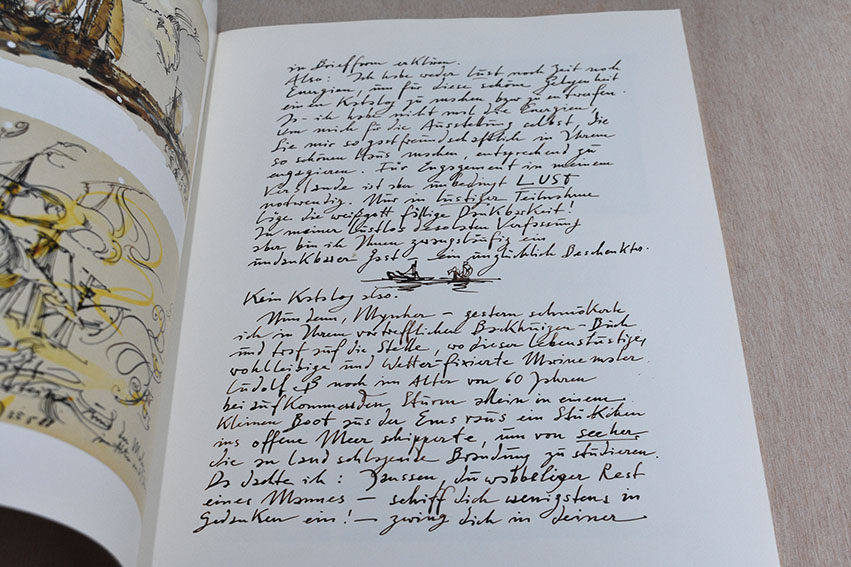 in Briefform erklären.
Also: Ich habe weder Lust noch Zeit noch
Energien, um für diese schöne Gelegenheit
einen Katalog zu machen bzw zu entwerfen.
Ja – ich habe nicht mal die Energien,
um mich für die Ausstellung selbst, die
Sie mir so gastfreundschaftlich in Ihrem
so schönen Haus machen, entsprechend zu
engagieren. Für Engagement in meinem
Verstande ist aber unbedingt LUST
notwendig. Nur in lustiger Teilnahme
läge die weißgott fällige Dankbarkeit!
In meiner lustlos desolaten Verfassung
aber bin ich Ihnen zwangsläufig ein
undankbarer Gast – ein unglücklich Beschenkter.
Kein Katalog also.
Nun denn, Mynher – gestern schmökerte
ich in Ihrem vortrefflichen Backhuizen-Buch
und traf auf die Stelle, wo dieser lebenslustige,
wohlleibige und Wetter fixierte Marinemaler
Ludolf noch im Alter von 60 Jahren
bei aufkommenden Sturm allein in einem
kleinen Boot aus der Ems raus ein Stückchen
ins offene Meer schipperte, um von seeher,
die an Land schlagende Brandung zu studieren.
Da dachte ich: Janssen, du wabbeliger Rest
eines Mannes – schiff dich wenigstens in
Gedanken ein! – zwing dich in deiner